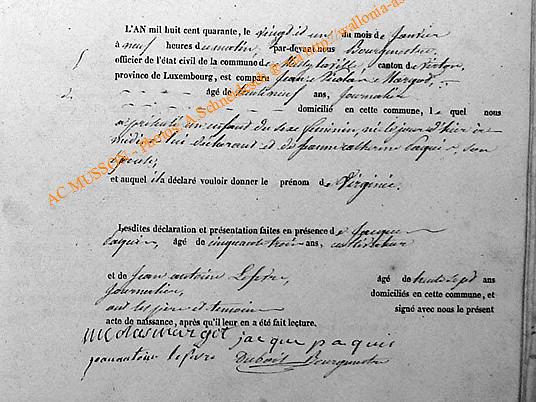 L'AN mil huit cent quarante, le vingt et un du mois de Janvier
à neuf heures du matin, par-devant nous Bourgmestre,
officier de l'état civil de la commune de canton de Virton,
province de Luxembourg, est comparu Jean Nicolas Margot,
âgé de ans, journalier
domicilié en cette commune, lequel nous
a présenté un enfant du sexe féminin, né le jour d'hier à
midi de lui déclarant et de Jeanne Catherine Paquis, son
épouse,
et auquel il a déclaré vouloir donner le prénom de Virginie.
Lesdites déclaration et présentation faites en présence de Jacque
Paquis, âgé de cinquante trois ans, cultivateur
et de Jean antoine Lefevre, âgé de trente sept ans
Journalier, domiciliés en cette commune, et
ont les père et temoins signé avec nous le présent
acte de naissance, après qu'il leur en a été fait lecture.
nicolas margot jacque paquis
jean antoine lefevre Dubois Bourgmestre
AC MUSSON - Photos: A Schneider @ http://wallonia-as